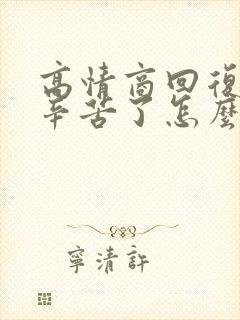 高情商回復
辛苦了怎麼
寧清許